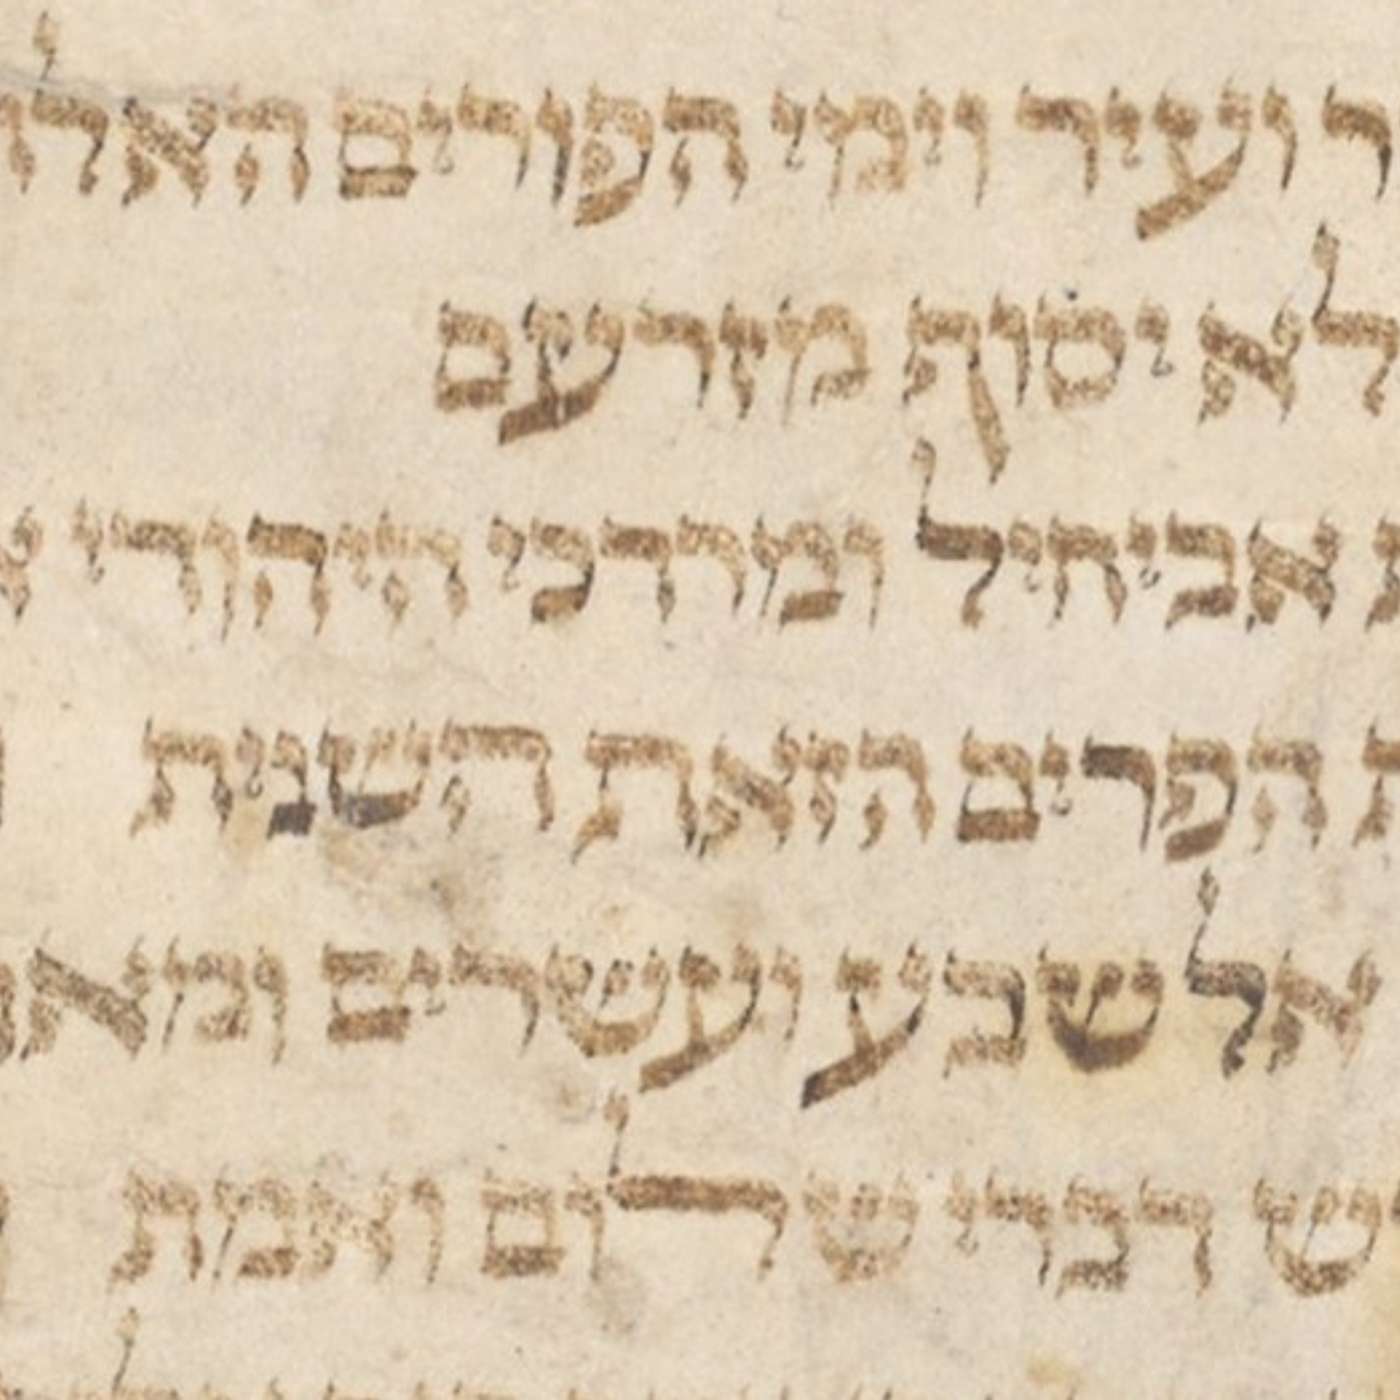 ר ועיר וימי הפורים האל
לא יסוף מזרעם
אביחיל ומרדכי היהודי
ת הפרים הזאת השנית
אל שבע ועשרים ומא
ש דברי שלום ואמת